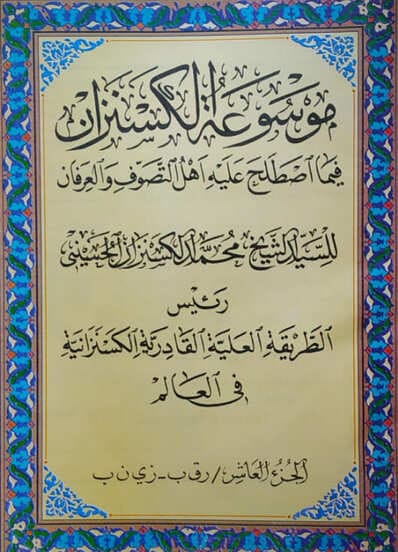 موسوعة الكسنزان
فيما اصطلح عليه أهل التصوف والعرفان
للسيد الشيخ محمد الكسنزان الحسيني
رئيس
الطريقة العلية القادرية الكسنزانية
في العالم
الجزء العاشر / ر ق ب - ز ي ن ب